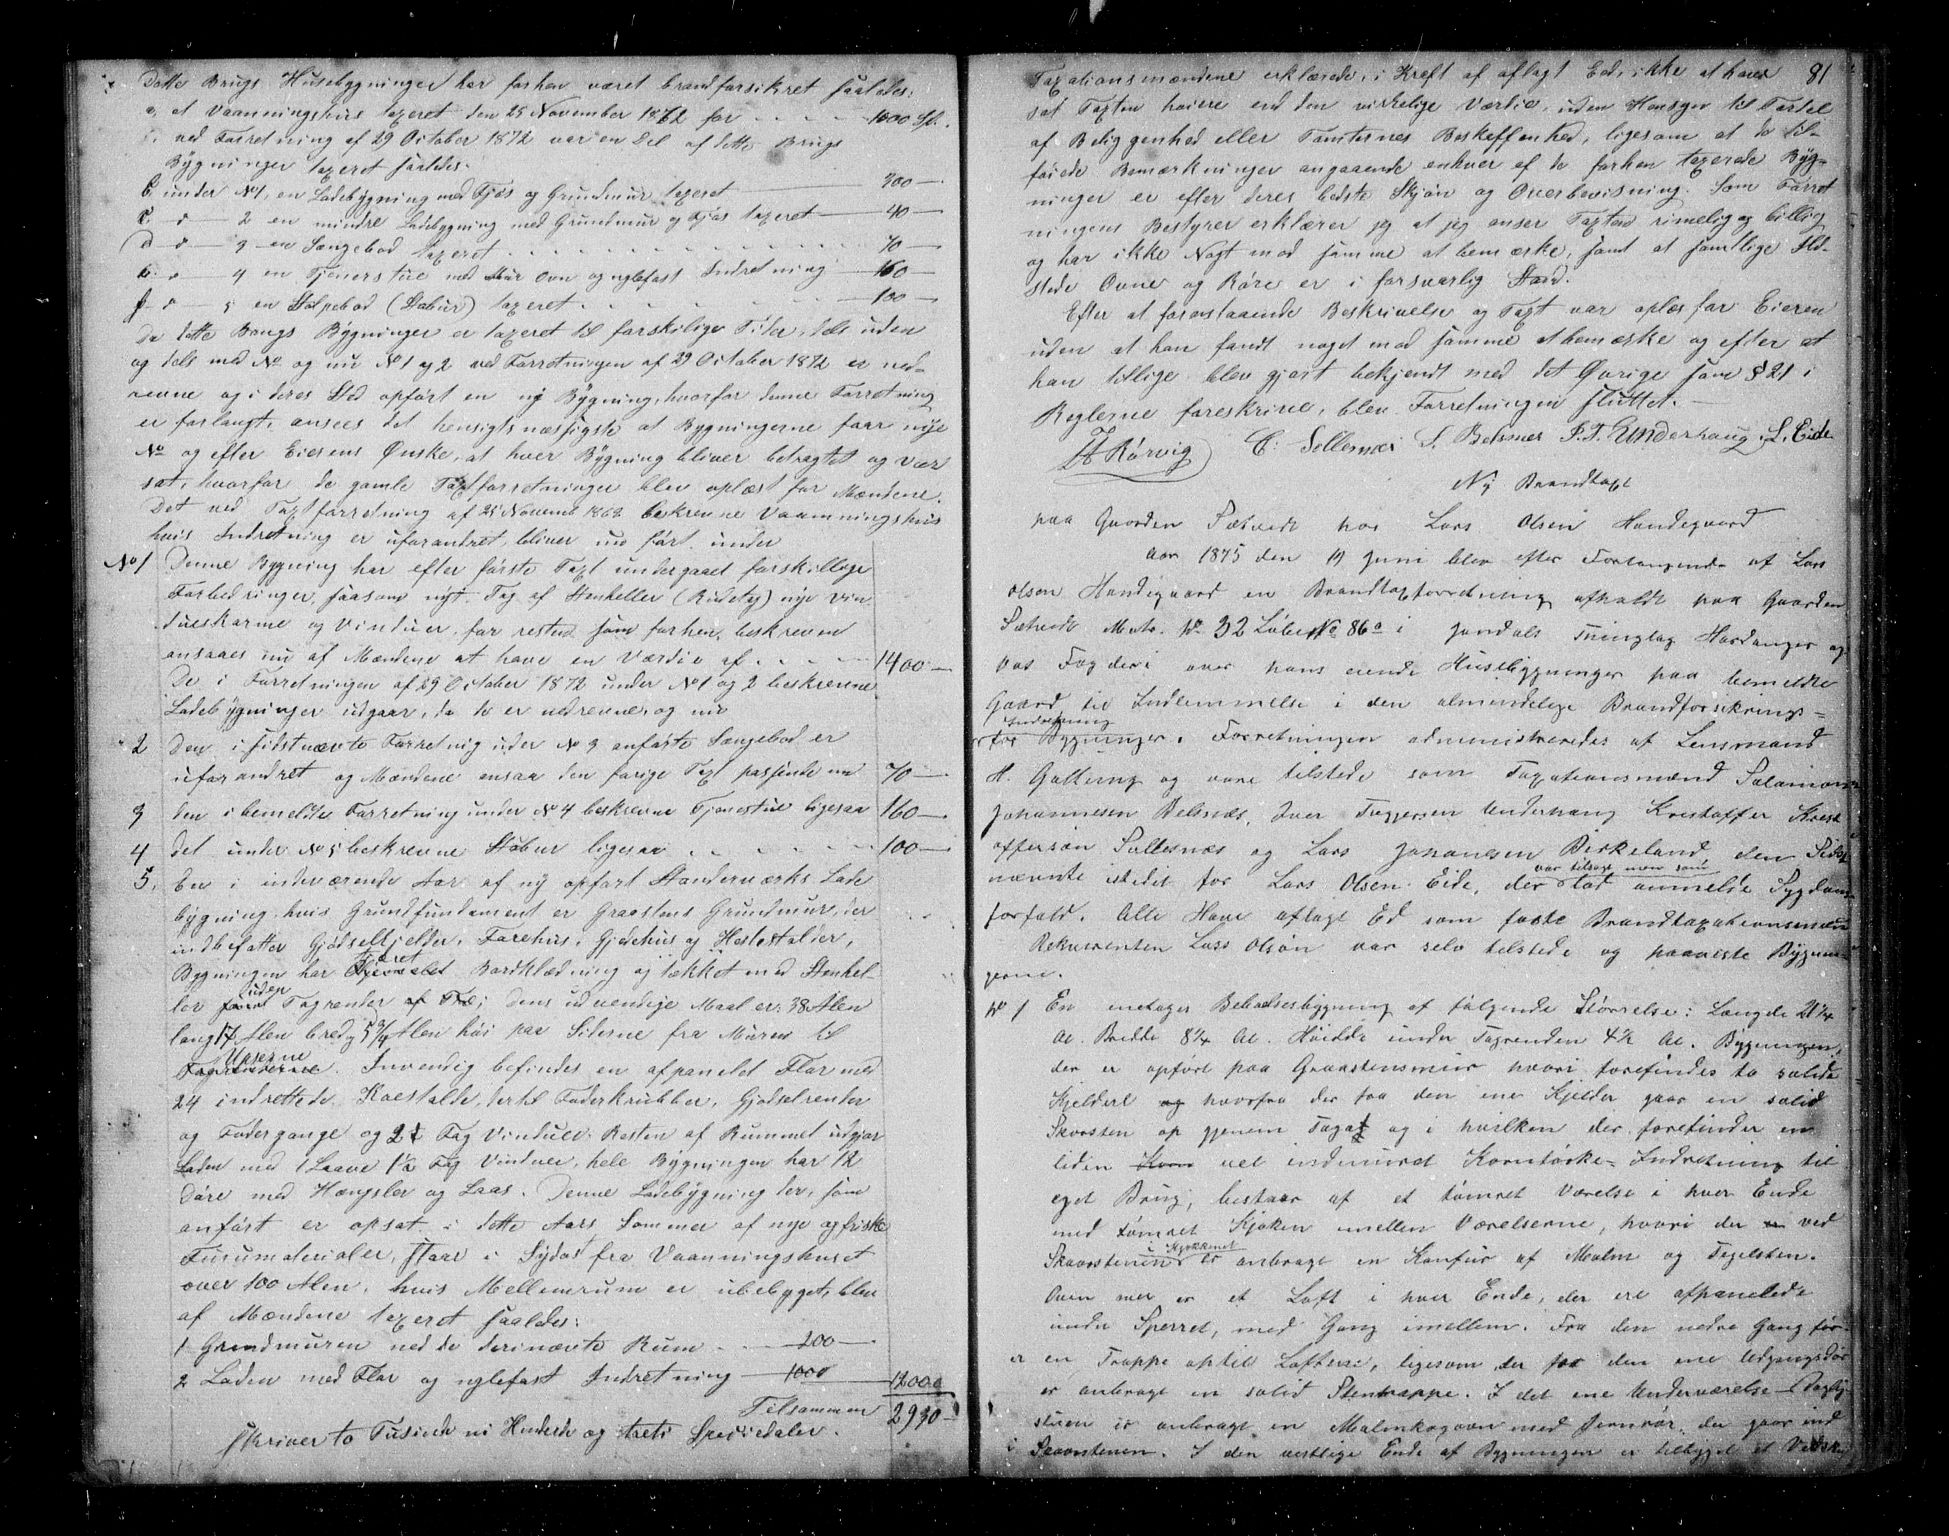 Dette Brugs Husebygninger har forhen været brandforsikret saaledes:
a, et Vaaningshuus taxeret den 25 November 1862 for . . . . 1000 Spl.
ved Forretning af 29 October 1872 var en Del af dette Brugs
Bygninger taxeret saaledes.
b under No 1, en Ladebygning med Fjøs og Grundmur taxeret 300 —
c. d — 2 en mindre Ladebygning med Grundmur og Fjøs taxeret — 40 —
d — d — 3 — en Sængebod taxeret . . . . 70 —
e. d — 4 en Tjenerstue med Mur Ovn og nglefast Indretning — 160 —
f — d — 5 en Stolpebod (Stabur) taxeret . . . . 100 —
Da dette Brugs Bygninger er taxeret til forskjellige Tider, dels uden
og dels med No og nu No 1 og 2 ved Forretningen af 29 October 1872 er ned-
revne og i deres Sted opført en ny Bygning, hvorfor denne Forretning
er forlangt, ansees det hensigtsmæssigste at Bygningerne faar nye
No og efter Eierens Ønske, at hver Bygning bliver betragtet og vær
sat, hvorfor de gamle Taxtforretninger blev oplæst for Mændene.
Det ved Taxtforretning af 25 November 1862 beskrevne Vaaningshus
hvis Indretning er uforandret, bliver nu ført under
No 1 Denne Bygning har efter første Taxt undergaaet forskillige
Forbedringer, saasom nyt Tag af Stenheller (Rudetag) nye Vin
dueskarme og Vinduer, for resten som forhen beskreven
ansaaes nu af Mændene at have en Værdie af . . . . 1400 —
De i Forretningen af 29 October 1872 under No 1 og 2 beskrevne
Ladebygninger udgaar, da de er nedrevne, og nu
2 Den i sidstnævnte Forretnig uder No 3 anførte Sængebod er
uforandret og Mændene ansaa den forige Taxt passende nu 70 —
3 den i bemeldte Forretning under No 4 beskrevne Tjenerstue ligesaa 160 —
4 det under No 5 beskrevne Stabur ligesaa . . . . 100 —
5. En i indeværende Aar af ny opført Standerværks Lade
bygning hvis Grundfundament er Graastens Grundmur, der
indbefatter Gjødselkjelder, Farehus, Gjedehus og Hestestalder,
Bygningen har tjæret Bordklædning og tækket med Stenhel-
ler uden Tagrender af Træ; dens udvendige Maal er: 38 Alen
lang 17 Alen bred og 5 3/4 Alen høi paa Siderne fra Muren til
Upserne
Tagrenderne. Invendig befindes en afpanelet Flor med
24 indrettede Koestalde, dertil Foderkrubber, Gjødselrender
og Fodergange og 2 Fag Vinduer. Resten af Rummet udgjør
Laden med 1 Laave 1 1/2 Fag Vinduer, hele Bygningen har 12
Døre med Hængsler og Laas. Denne Ladebygning der, som
anført er opsat i dette Aars Sommer af nye og friske
Furumaterialer, staar i Sydost fra Vaaningshuset
over 100 Alen, hvis Mellemrum er ubebygget, blev
af Mændene taxeret saaledes:
1 Grundmuren med de derinævnte Rum . . . 200 —
2 Laden med Flor og nglefast Indretning — 1000 1200 —
Tilsammen 2930 —
skriver to Tusinde ni Hundrede og treti Speciedaler.
81
Taxationsmændene erklærede, i Kraft af aflagt Eed, ikke at have
sat Taxten høiere end den virkelige Værdie, uden Hensyn til Fordel
af Beliggenhed eller Tomternes Beskaffenhed, ligesom at de til-
føiede Bemærkninger angaaende enhver af de forhen taxerede Byg-
ninger er efter deres bedste Skjøn og Overbevisning. Som Forret
ningens Bestyrer erklærer jeg at jeg anser Taxten rimelig og billig
og har ikke Nogt mod samme at bemærke, samt at samtlige Ild-
stede Ovne og Røre er i forsvarlig Stand.
Efter at foranstaaende Beskrivelse og Taxt var oplæst for Eieren
uden at han fandt noget mod samme at bemærke og efter at
han tillige blev gjort bekjendt med det Øvrige som § 21 i
Reglerne foreskrive, blev Forretningen sluttet. —
H Rørvig C. Sellesnæs S. Belsnes P. T. Underhaug L. Eide
Ny Brandtaxt
paa Gaarden Sætvedt hos Lars Olsen Handegaard
Aar 1875 den 19 Juni blev efter Forlangende af Lars
Olsen Handegaard en Brandtaxtforretning afholdt paa Gaarden
Sætvedt Matr. No 32 Løbe No 86a i Jondals Thinglag Hardanger og
Vos Fogderi over hans eiende Husebygninger paa bemeldte
Gaard til Indlemmelse i den almindelige Brandforsikrings-
Indretning
for Bygninger. Forretningen administreredes af Lensmand
H. Galtung og vare tilstede som Taxationsmænd Salamon
Johannesen Belsnæs, Iver Torgersen Underhaug Kristoffer Krist
offersøn Sellesnæs og Lars Johanesen Birkeland den Sidst
var tilsagt men som
nævnte istedet for Lars Olsen Eide, der anmelte Sygdoms
forfald. Alle Have aflagt Ed som faste Brandtaxationsmænd
Rekvirenten Lars Olsøn var selv tilstede og paaviste Bygnin-
gerne.
No 1 En enetages Beboelsesbygning af følgende Størrelse: Længde 21 1/4
Al. Bredde 8 1/4 Al. Høidde under Tagrenden 4 1/2 Al. Bygningen,
der er opført paa Graastensmuur hvori forefindes to solide
Kjeldere og hvorfra der fra den ene Kjelder gaar en solid
Skorsten op gjenem Taget og i hvilken der forefinder en
liden vel indmuret Korntørke-Indretning til
eget Brug, bestaar af et tømret Værelse i hver Ende
med tømret Kjøken imellem Værelserne, hvori der ved
i Kjøkkenet
Skorstenen er anbragt en Komfur af Malm og Tegelsten.
Oven mer er et Loft i hver Ende, der ere afpanelede
under Sperret, med Gang imellem. Fra den nedre Gang før-
er en Trappe optil Lofterne, ligesom der for den ene Udgangsdør
er anbragt en solid Stentrappe. I det ene Underværelse — Daglig-
stuen er anbragt en Malmkogovn med Jernrør, der gaar ind
i Skorstenen. I den vestlige Ende af Bygningen er tilbygget et Vedskur